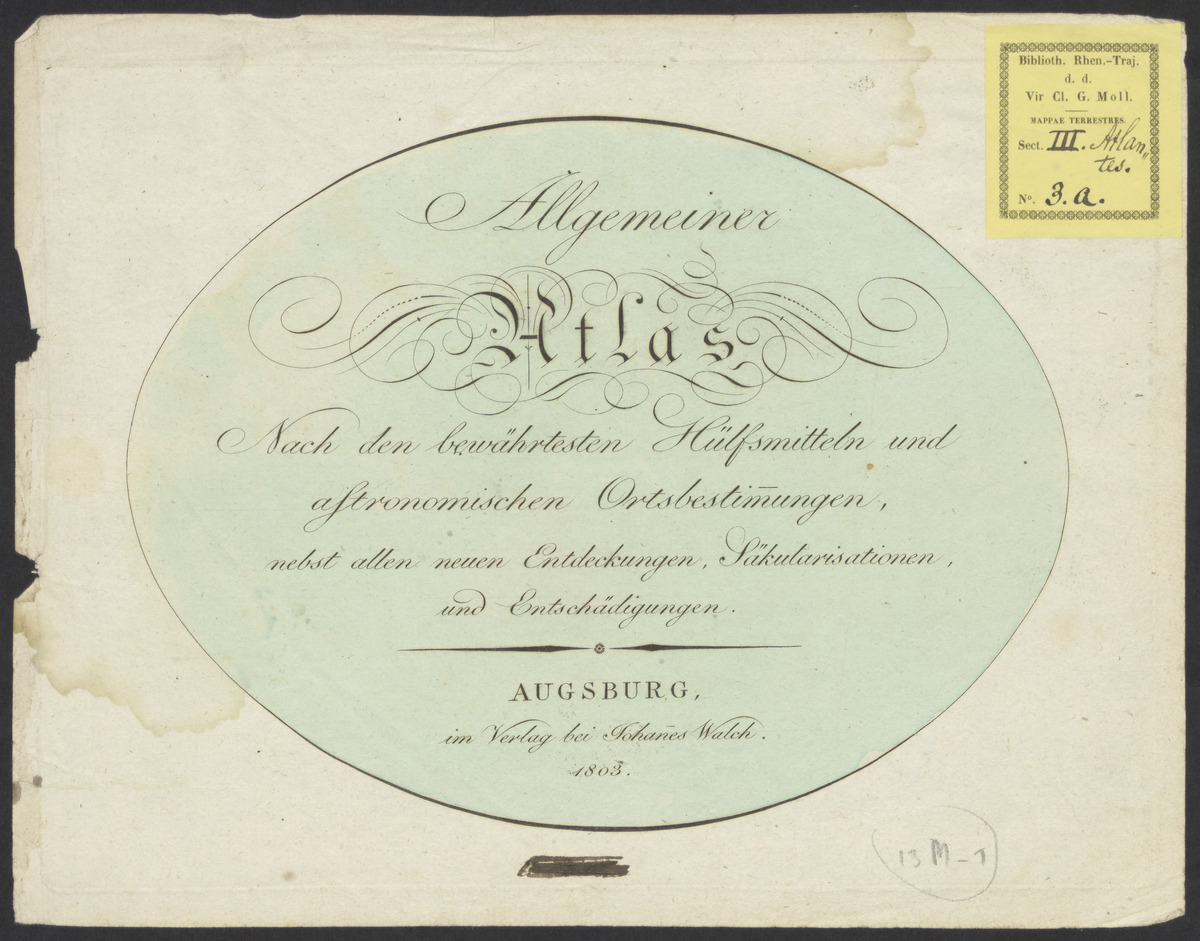 Biblioth. Rhen.-Traj.
d. d.
Vir Cl. G. Moll.
MAPPAE TERRESTRES.
Sect. III. Atlan„
tes.
No. 3.a.
Allgemeiner
Atlas
Nach den bewährtesten Hülfsmitteln und
aſtronomischen Ortsbestim̄ungen,
nebst allen neuen Entdeckungen, Säkularisationen,
und Entschädigungen.
AUGSBURG,
im Verlag bei Johan̄es Walch.
1803.
13 M-1